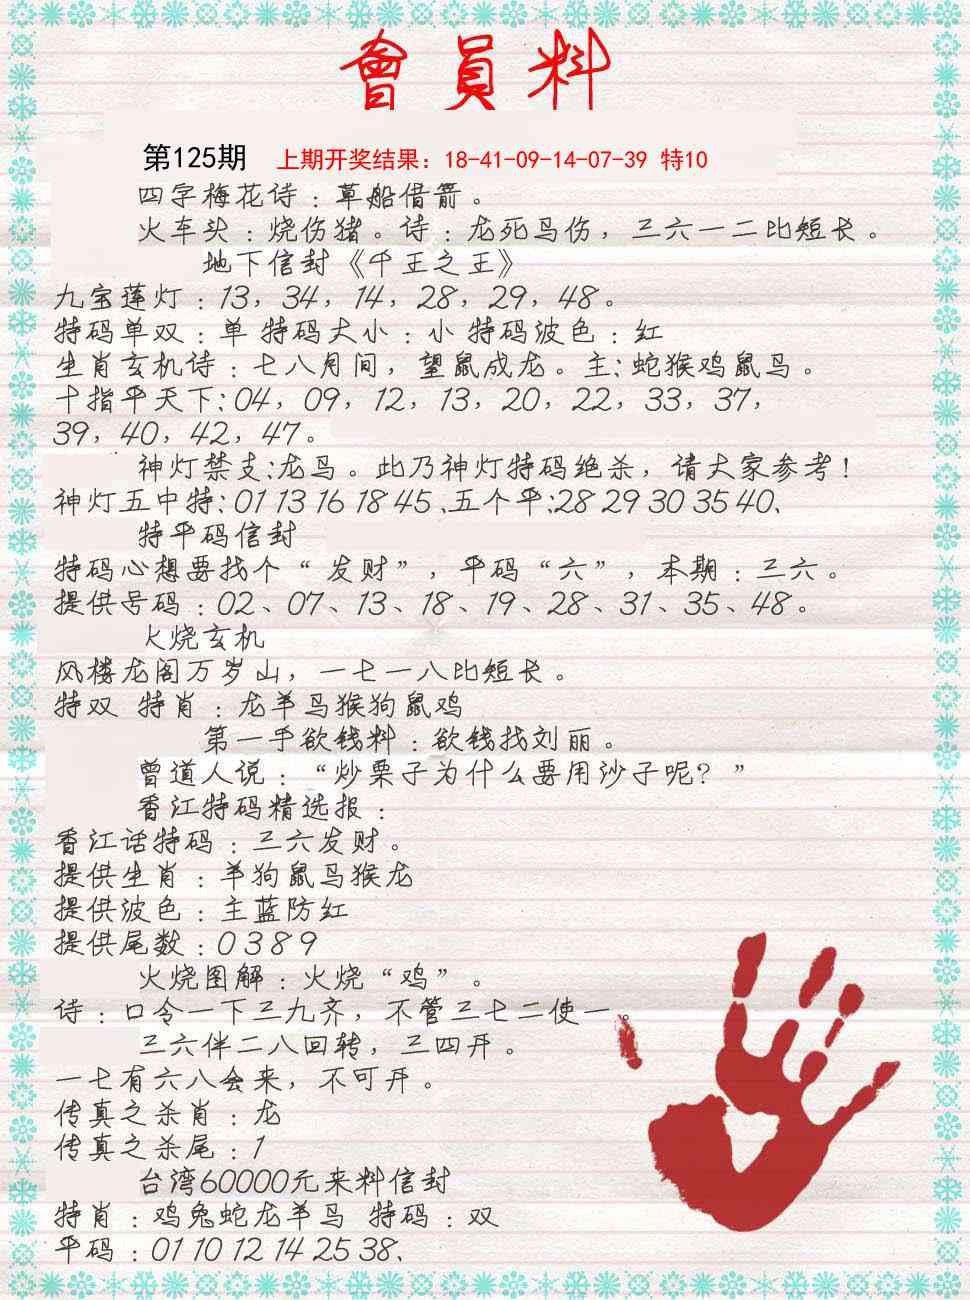 會員料
第125期 上期开奖结果：18-41-09-14-07-39 特10
四字梅花诗：草船借箭。
火车头：烧伤猪。诗：龙死鸟伤，三六一二比短长。
地下信封《千王之王》
九宝莲灯：13，34，14，28，29，48。
特码单双：单 特码大小：小 特码波色：红
生肖玄机诗：七八月间，望鼠成龙。主:蛇猴鸡鼠马。
十指平天下:04，09，12，13，20，22，33，37，
39，40，42，47。
神灯禁支:龙马。此乃神灯特码绝杀，请大家参考！
神灯五中特:01 13 16 18 45、五个平:28 29 30 35 40、
特平码信封
特码心想要找个“发财”，平码“六”，本期：三六。
提供号码：02、07、13、18、19、28、31、35、48。
火烧玄机
风楼龙阁万岁山，一七一八比短长。
特双 特肖：龙羊马猴狗鼠鸡
第一手欲钱料：欲钱找刘丽。
曾道人说：“炒栗子为什么要用沙子呢？”
香江特码精选报：
香江话特码：三六发财。
提供生肖：羊狗鼠马猴龙
提供波色：主蓝防红
提供尾数：0 3 8 9
火烧图解：火烧“鸡”。
诗：口令一下三九齐，不管三七二使一。
三六伴二八回转，三四开。
一七有六八会来，不可开。
传真之杀肖：龙
传真之杀尾：1
台湾60000元来料信封
特肖：鸡兔蛇龙羊马 特码：双
平码：01 10 12 14 25 38、